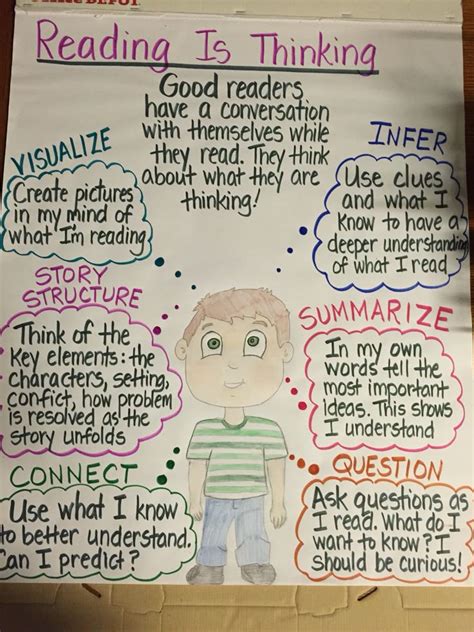 DEPOT
Reading Is Thinking
Good readers
have a conversation
with themselves while
they read. They think
about what they are
thinking!
VISUALIZE
Create pictures
in my mind of
what I'm reading
INFER
Use clues
and what I
Know to have a
deeper understanding
of what I read
STORY
STRUCTURE
Think of the
Key elements: the
characters, setting,
confict, how problem
is resolved as the
story unfolds
SUMMARIZE
In my own
words tell the
most important
ideas. This shows
I understand
CONNECT
Use what I know
to better understand.
Can I predict?
QUESTION
Ask questions as
I read. What do I
want to know? I
should be curious!